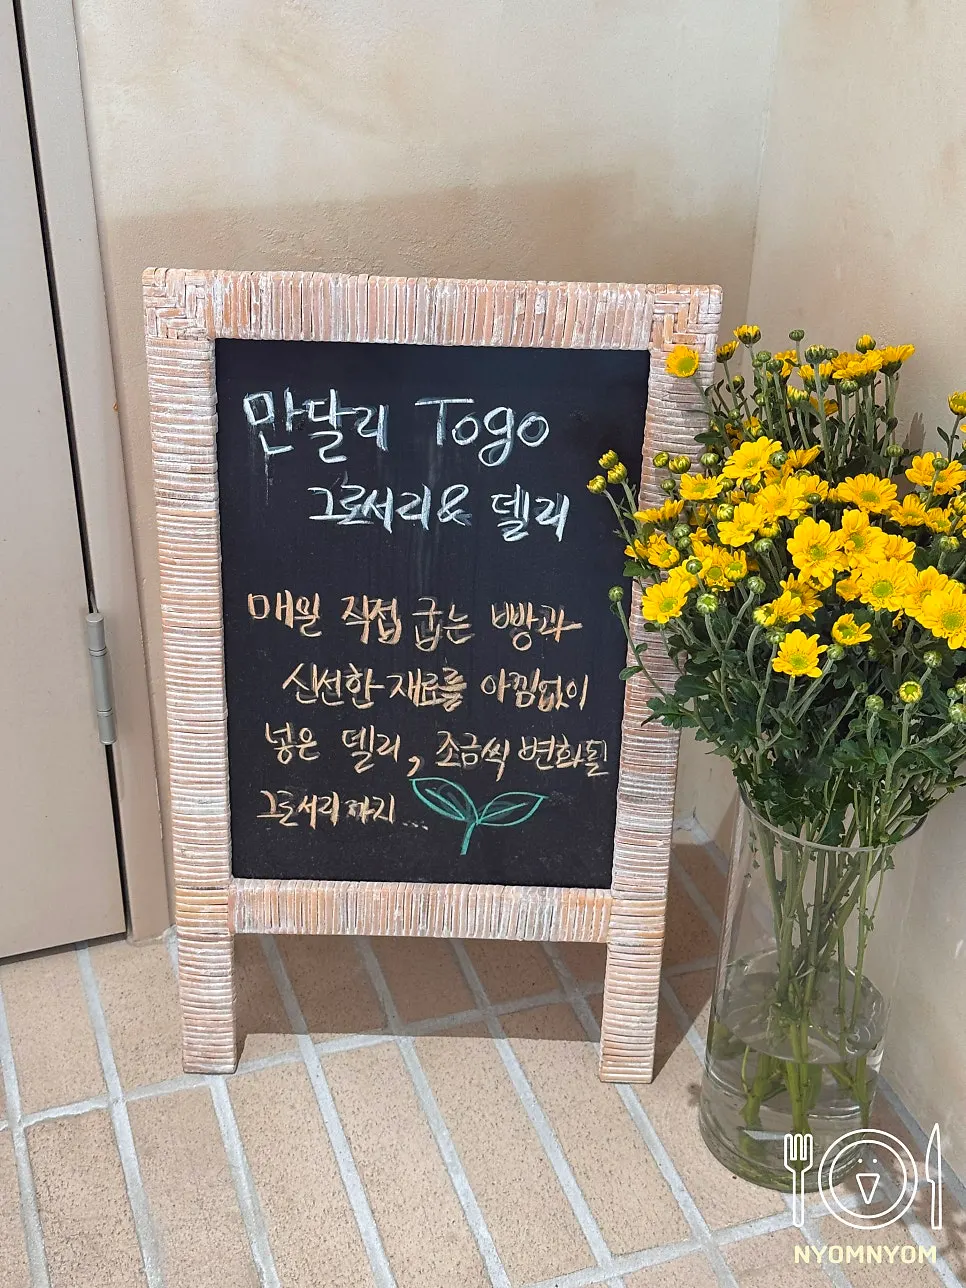 만달리 Togo
그로서리 & 델리
매일 직접 굽는 빵과
신선한 재료를 아낌없이
넣은 델리, 조금씩 변화될
그로서리까지...
NYOMNYOM